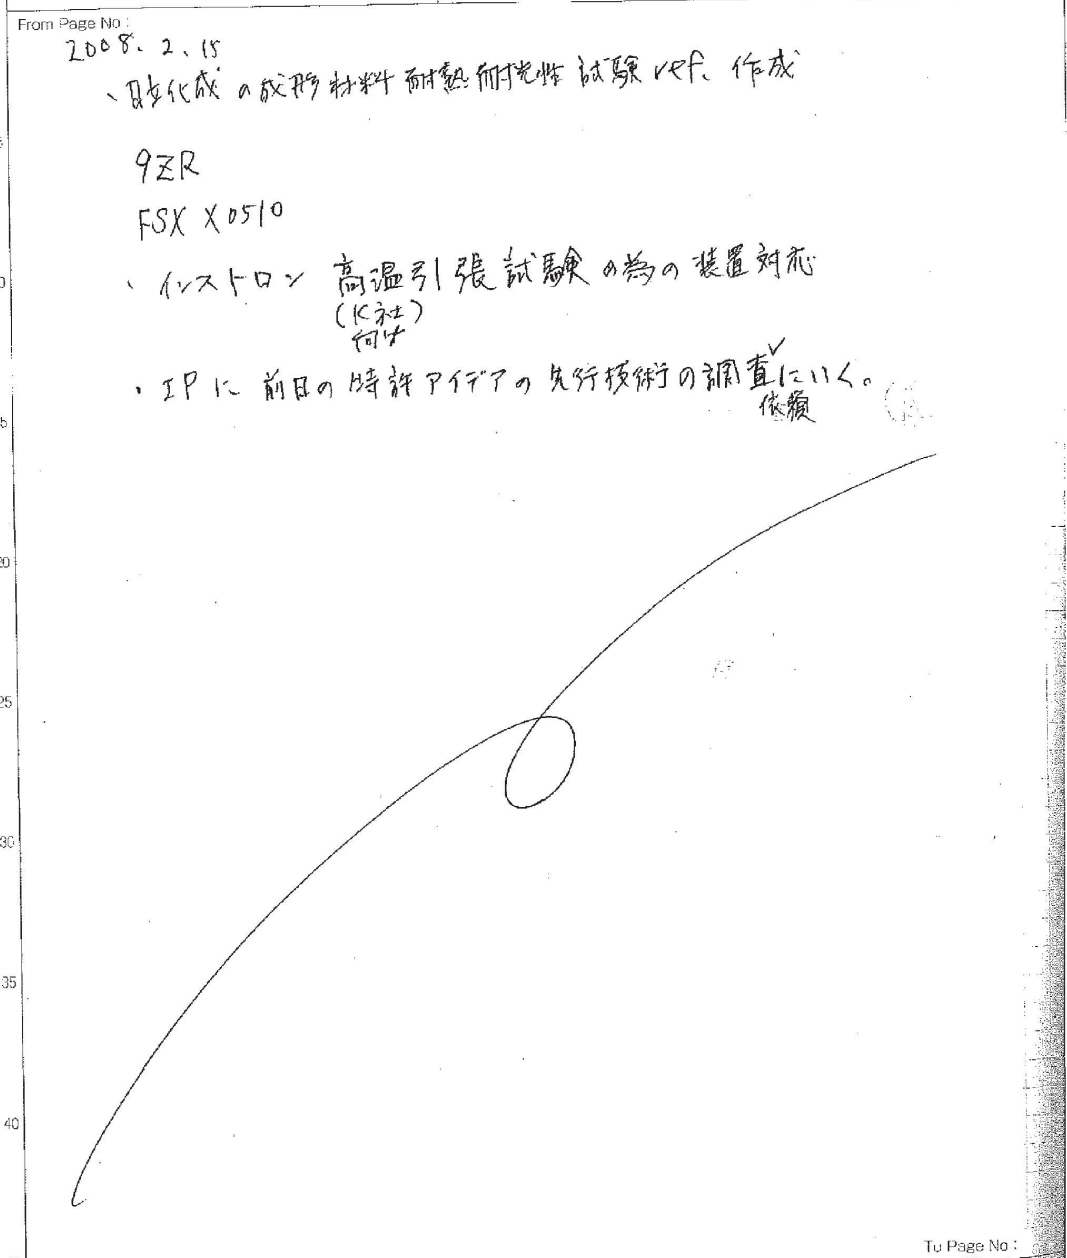 From Page No :
2008. 2. 15
・日立化成の成形材料 耐熱耐光性 試験 ref. 作成
9ZR
FSX X0510
・インストロン 高温引張試験の為の装置対応
(K社)
向け
・IPに 前日の特許アイデアの先行技術の調査✓にいく。
依頼
20
25
30
35
40
To Page No :